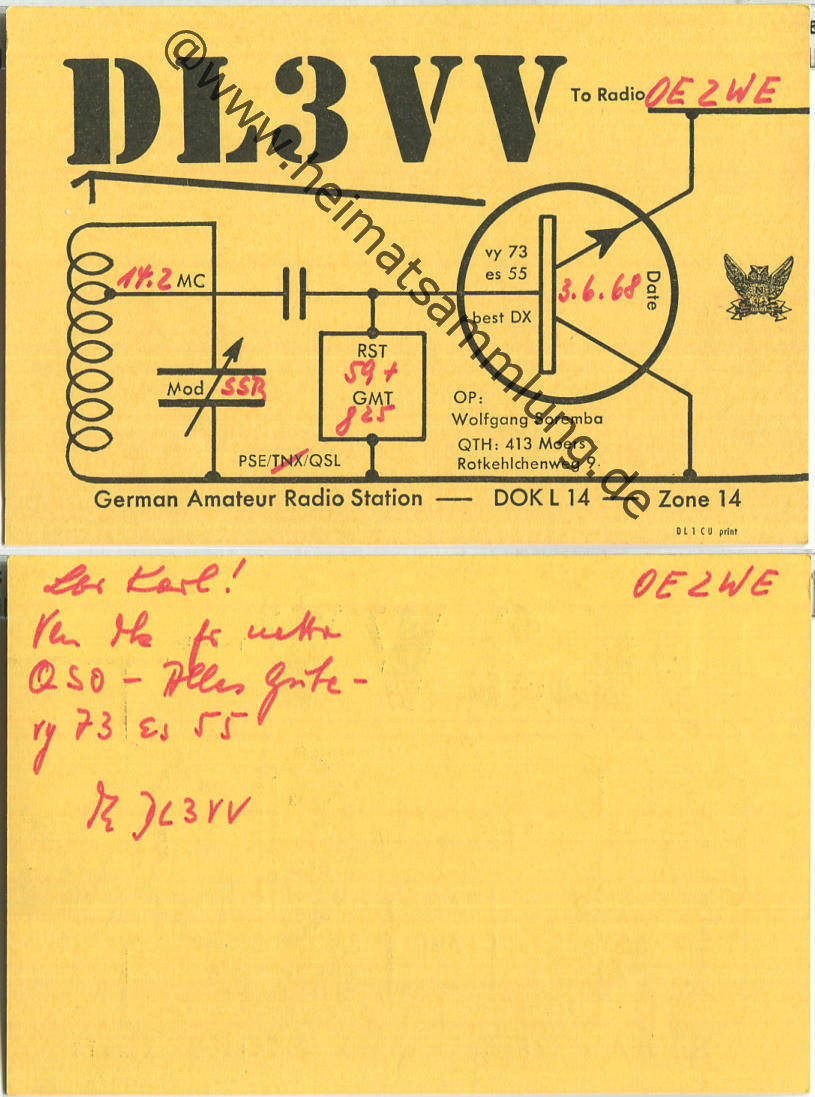 DL3VV
To Radio OE2WE
14.2 MC
vy 73
es 55
best DX
3.6.68
Date
RST
59+
GMT
825
Mod SSB
OP:
Wolfgang Soremba
QTH: 413 Moers
Rotkehlchenweg 9
PSE/TNX/QSL
German Amateur Radio Station — DOK L 14 — Zone 14
DL1CU print
@www.heimatsammlung.de
OE2WE
Lbr Karl!
Vln dk fr nette
QSO - Alles Gute -
vy 73 es 55
DL3VV